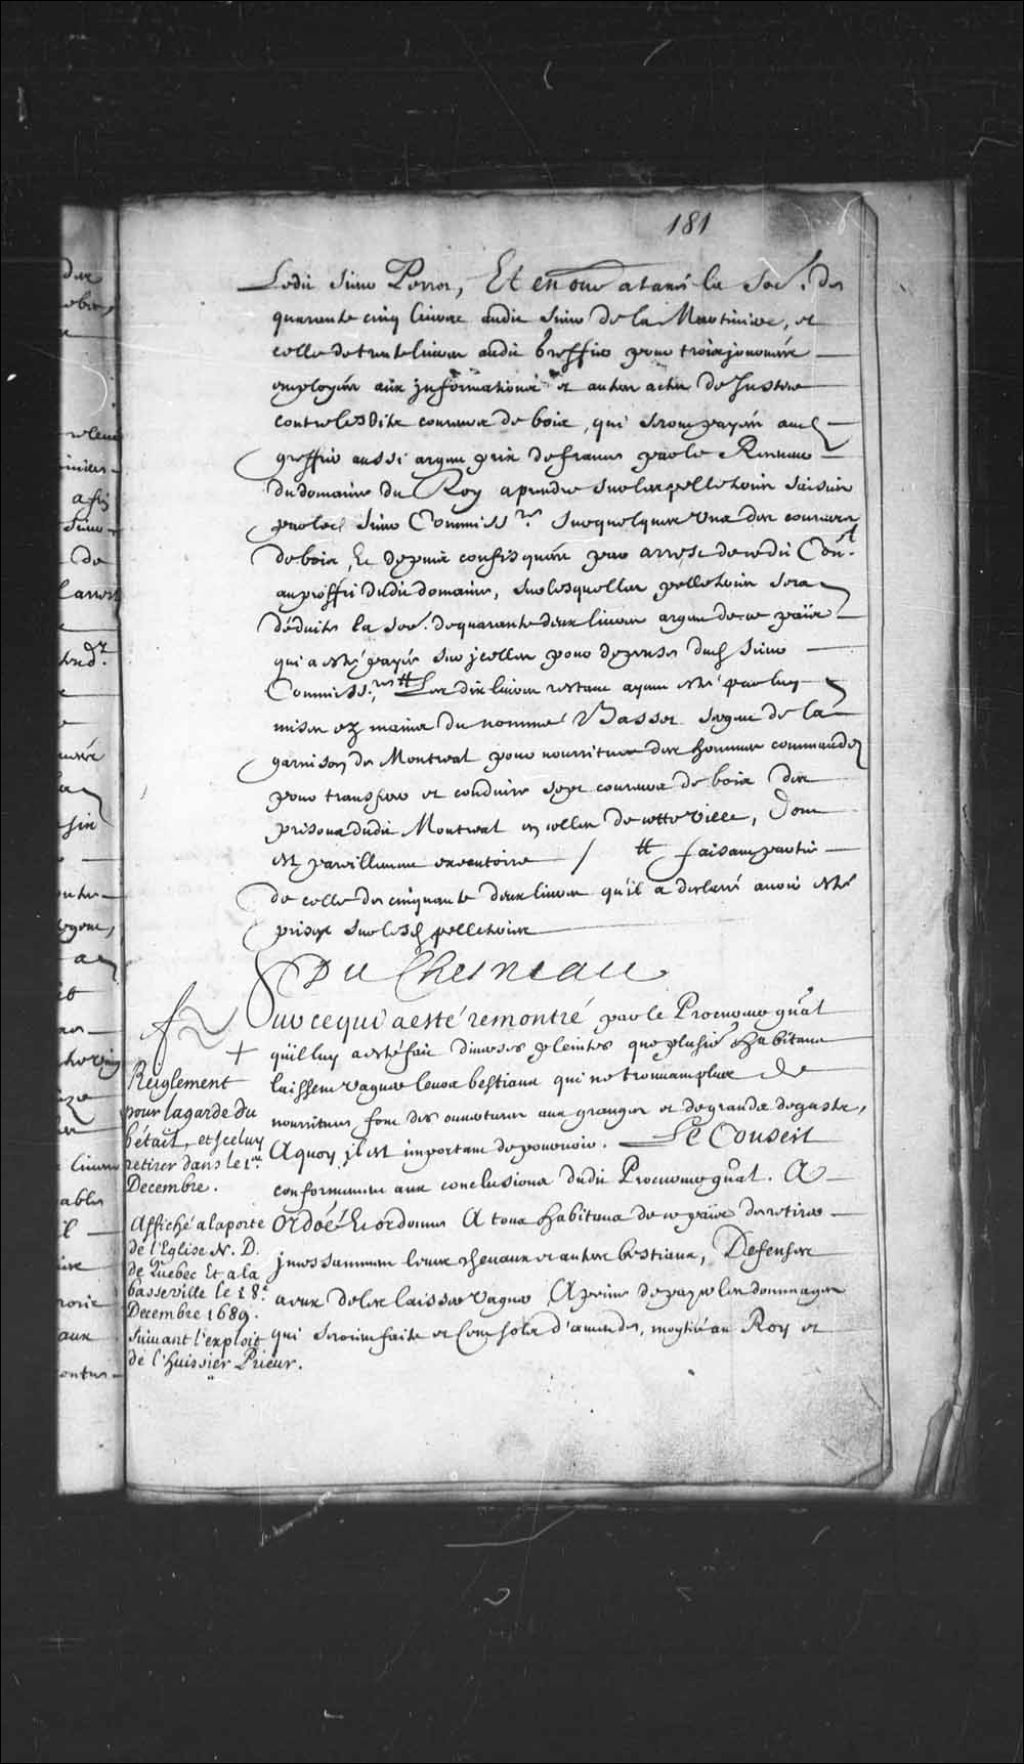 181
Ledit sieur Perrot, Et en outre a taxé la so.e de
quarante cinq livres audit sieur de la Martiniere, et
celle de trente livres audit Greffier pour trois journées
employées aux jnformations et autres actes de Justice
contre lesdits coureurs de bois, qui seront payées aud
greffier aussi argent prix de france par le Receveur
du domaine du Roy a prendre sur les pelleteries saisies
par led sieur Commiss.re sur quelques uns des coureurs
de bois, Et depuis confisquées par arrest de cedit Con.l
au proffit dudit domaine, sur lesquelles pelleteries sera
déduite la so.e de quarante deux livres argent de ce païs
qui a esté payée sur jcelles pour depenses dud sieur
Commiss.re, # Les dix livres restant ayant esté par luy
mises ez mains du nommé Basset sergent de la
garnison de Montreal pour nourriture des hommes commandez
pour transferer et conduire sept coureurs de bois des
prisons dudit Montreal en celles de cette ville, dont
est pareillement executoire / # faisant partie
de celle de cinquante deux livres qu'il a declaré avoir esté
prise sur lesd pelleteries
Du Chesneau
Sur ce qui a esté remontré par le Procureur gñal
qu'il luy a esté fait diverses pleintes que plusie.rs habitans
laissent vaguer leurs bestiaux qui ne trouvant plus de
nourriture font des ouvertures aux granges et de grands degasts,
A quoy jl est important de pourvoir. Le Conseil
conformement aux conclusions dudit Procureur gñal. A
ordoé Et ordonne A tous habitans de ce païs de retirer
jncessamment leurs chevaux et autres bestiaux, Defenses
a eux de les laisser vaguer A peine de payer les dommages
qui seroient faits et cent sols d'amende, moytié au Roy et
+
Reiglement
pour la garde du
bétail, et jceluy
retirer dans le 1.er
Decembre.
Affiché a la porte
de l'Eglise N. D.
de Quebec Et a la
basseville le 18.e
Decembre 1689.
Suivant l'exploit
de l'huissier Prieur.